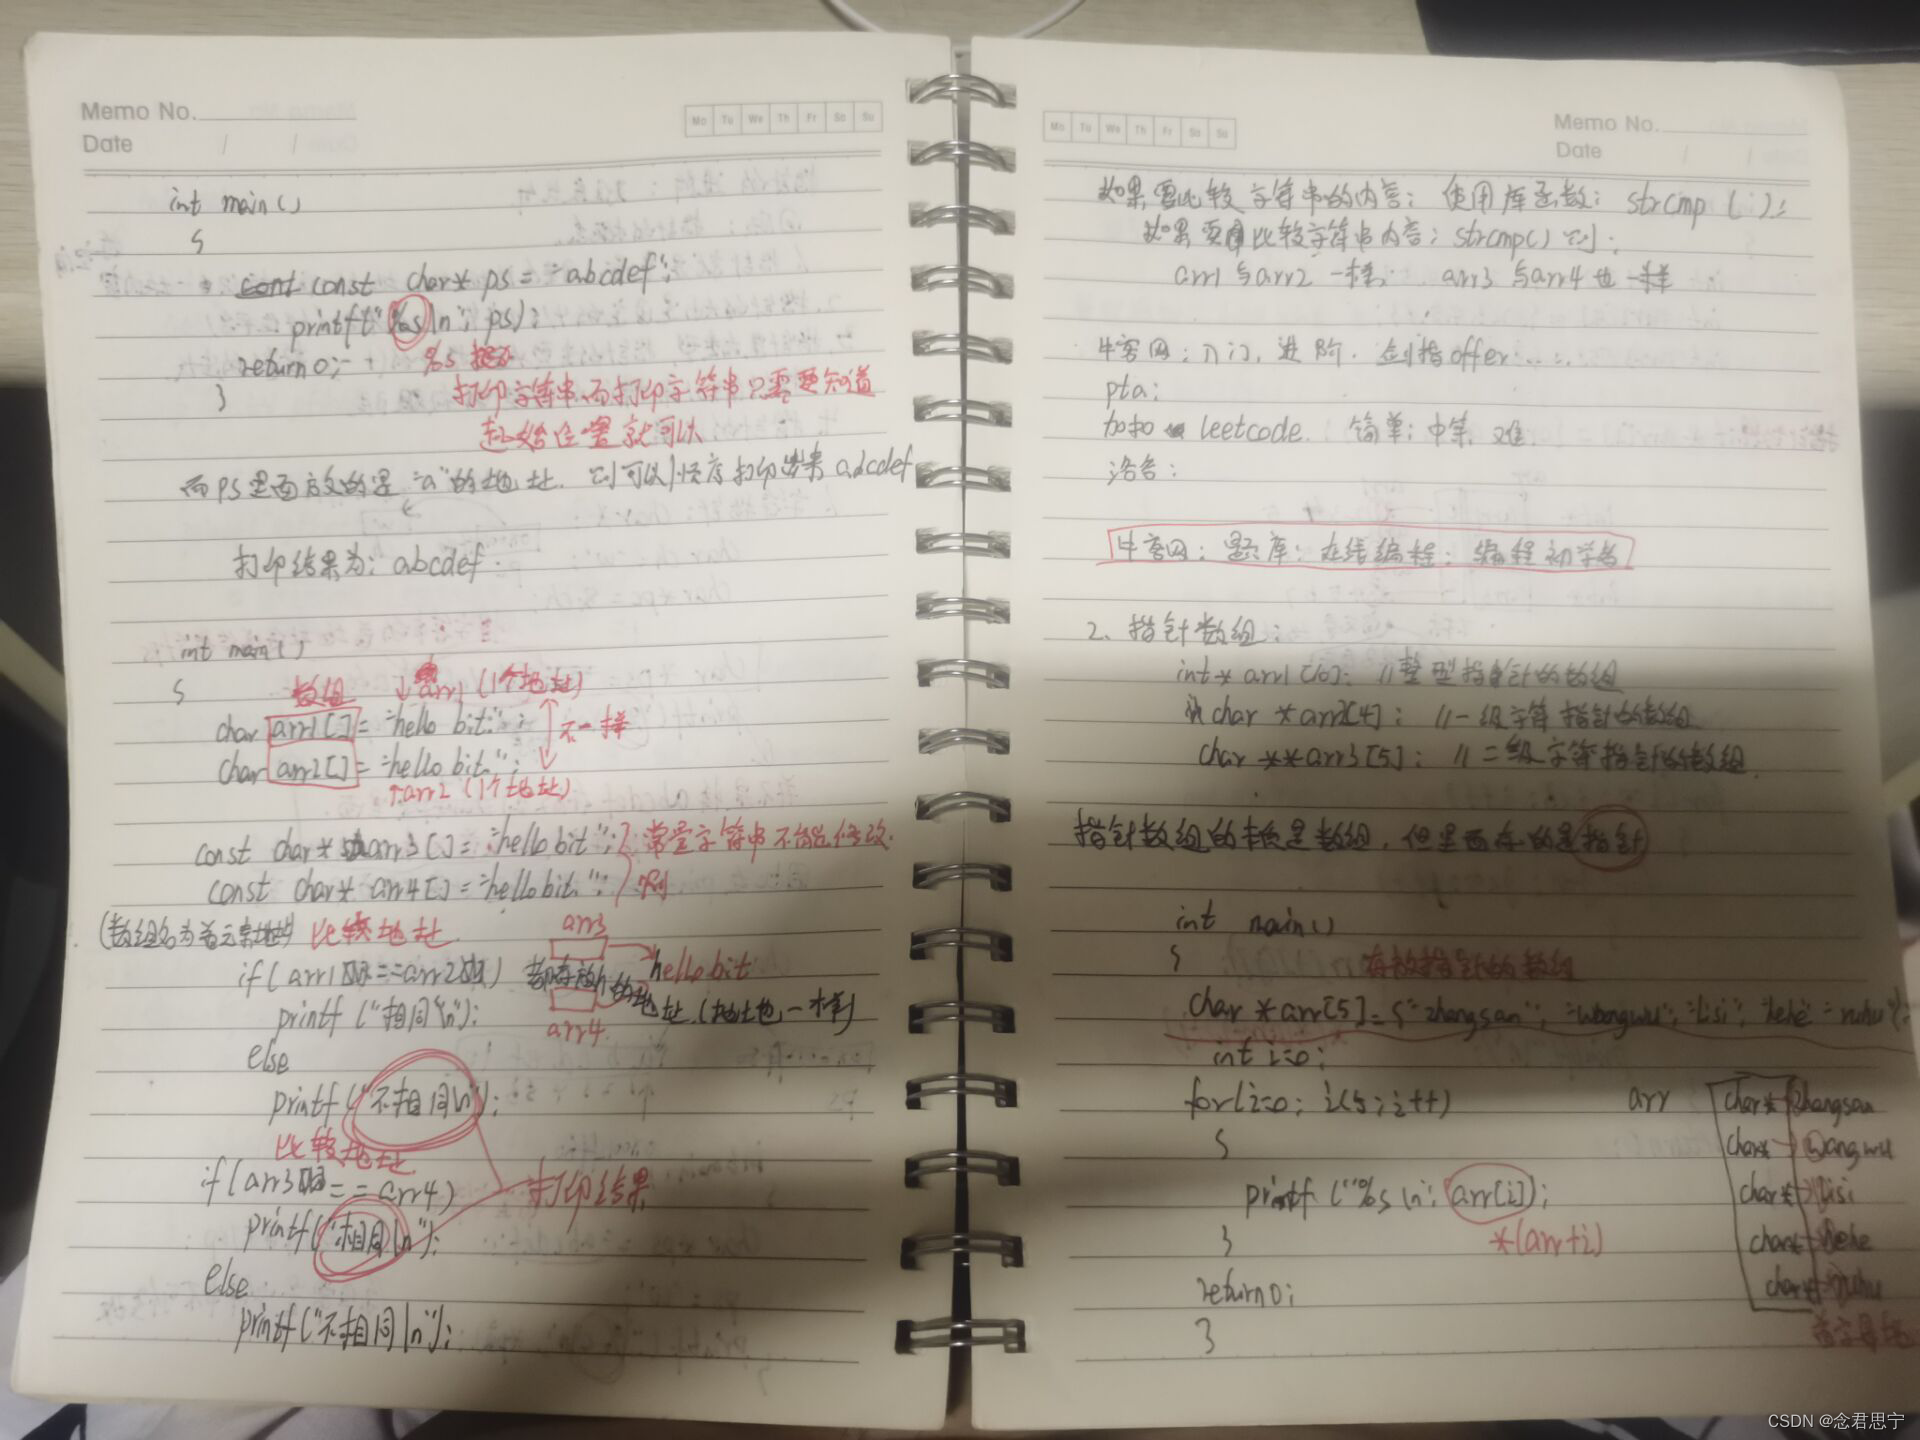 Memo No.
Date / /
Mo Tu We Th Fr Sa Su
int main()
{
const char* ps = "abcdef";
printf("%s\n", ps);
return 0;
%s
}
打印字符串而打印字符串只需要知道
起始位置就可以
而ps里面放的是"a"的地址. 则可以顺序打印出来abcdef
打印结果为: abcdef.
int main()
{
数组 ↓arr1 (1个地址)
char arr1[] = "hello bit.";
不一样
char arr2[] = "hello bit.";
↑arr2 (1个地址)
const char* arr3[] = "hello bit"; 常量字符串不能修改.
const char* arr4[] = "hello bit.";
(数组名为首元素地址) 比较地址.
arr3
if(arr1 == arr2) 都存放h的地址.(地址也一样)
hello bit
printf ("相同\n");
arr4.
else
printf ("不相同\n");
比较地址.
if(arr3 == arr4) 打印结果
printf("相同\n");
else
printf("不相同\n");
Mo Tu We Th Fr Sa Su
Memo No.
Date / /
如果要比较字符串的内容; 使用库函数: strcmp ( ; );
如果要比较字符串内容; strcmp() 则;
arr1与arr2一样; arr3与arr4也一样
牛客网: 入门, 进阶. 剑指offer......
pta:
力扣 leetcode. 简单; 中等. 难
洛谷:
牛客网: 题库: 在线编程: 编程初学者
2、指针数组:
int* arr1[10]; //整型指针的数组
char *arr2[4]; //一级字符指针的数组
char **arr3[5]; //二级字符指针的数组
指针数组的本质是数组, 但里面存的是指针
int main()
{
存放指针的数组
char *arr[5] = {"zhangsan", "wangwu", "lisi", "hehe"
int i=0;
for(i=0; i<5; i++)
{
printf ("%s\n", arr[i]);
}
*(arr+i)
return 0;
}
arr
char* zhangsan
char* wangwu
char* lisi
char* hehe
char*
CSDN @念君思宁